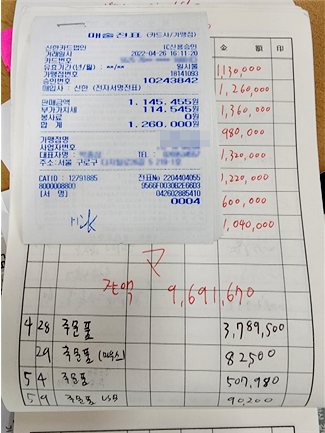 매출전표 (카드사/가맹점)
신한카드법인 IC신용승인
거래일시 2022-04-26 16:11:20
카드번호
유효기간(년/월) : **/** 일시불
가맹점번호 18141093
승인번호 10243842
매입사 : 신한 (전자서명전표)
판매금액 1,145,455원
부가가치세 114,545원
봉사료 0원
합 계 1,260,000원
가맹점명
사업자번호
대표자명 : TEL :
주소: 서울 구로구
CATID : 12791885 전표No 2204404055
8000008803
[서 명] 042602885410
0004
金 額 印
1,130,000
1,260,000
1,360,000
980,000
1,320,000
1,220,000
600,000
1,040,000
잔액 9,691,670
4 28 주문품 3,789,500
29 주문품 82500
5 4 주문품 507,980
5 9 주문품 USB 90200